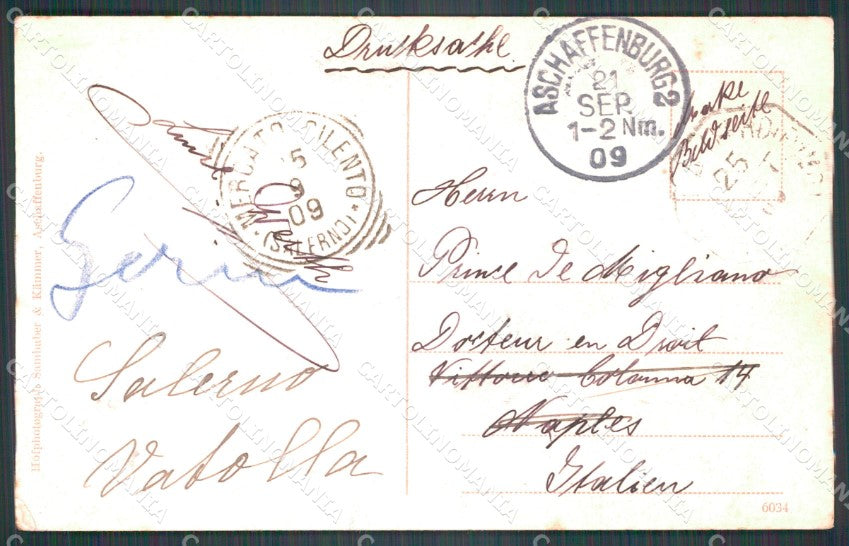 Drucksache
ASCHAFFENBURG 2
21
SEP.
1-2 Nm.
09
Marke
Bildseite
25
MERCATO CILENTO
5
9
09
(SALERNO)
Herrn
Prince De Migliano
Docteur en Droit
Vittorio Colonna 14
Naples
Italien
Salerno
Vatolla
Hofphotograf. Samhaber & Klimmer, Aschaffenburg.
6034
CARTOLINOMANIA